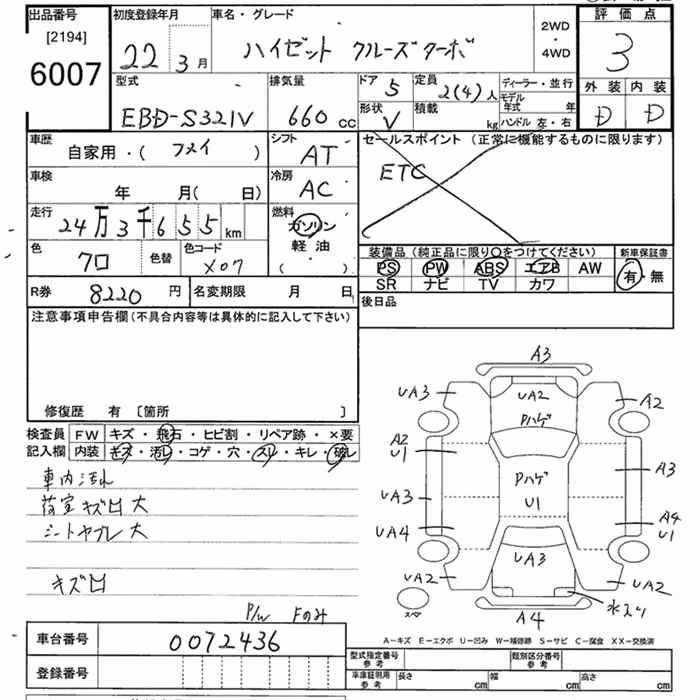 出品番号 初度登録年月 車名・グレード 2WD・4WD 評価点
[2194]
6007 22 3月 ハイゼット クルーズターボ 3
型式 排気量 ドア 5 定員 2(4)人 ディーラー・並行 外装 内装
モデル年式 年
EBD-S321V 660cc 形状 V 積載 kg ハンドル 左・右 D D
車歴 シフト セールスポイント (正常に機能するものに限ります)
自家用・( ) AT ETC
車検 冷房
年 月( 日) AC
走行 燃料
24万3千655km ガソリン
軽油
色 色替 色コード ( ) 装備品(純正品に限り○をつけてください) 新車保証書
クロ X07 PS PW ABS エアB AW 有・無
R券 8220円 名変期限 月 日 SR ナビ TV カワ
注意事項申告欄(不具合内容等は具体的に記入して下さい) 後日品
修復歴 有 [箇所 ]
検査員 FW キズ・飛石・ヒビ割・リペア跡・×要
記入欄 内装 キズ・汚レ・コゲ・穴・スレ・キレ・破レ
車内汚れ
荷室キズ凹大
シートヤブレ大
キズ凹
P/W Fのみ
A3
UA3 UA2 A2
Pハゲ
A2
U1 A3
Pハゲ
UA3 U1 A4
U1
UA4
UA3
UA2 UA2
スペア A4
A-キズ E-エクボ U-凹み W-補修跡 S-サビ C-腐食 XX-交換済
車台番号 0072436
型式指定番号 参考 類別区分番号 参考
登録番号 車庫証明用 参考 長さ cm 幅 cm 高さ cm